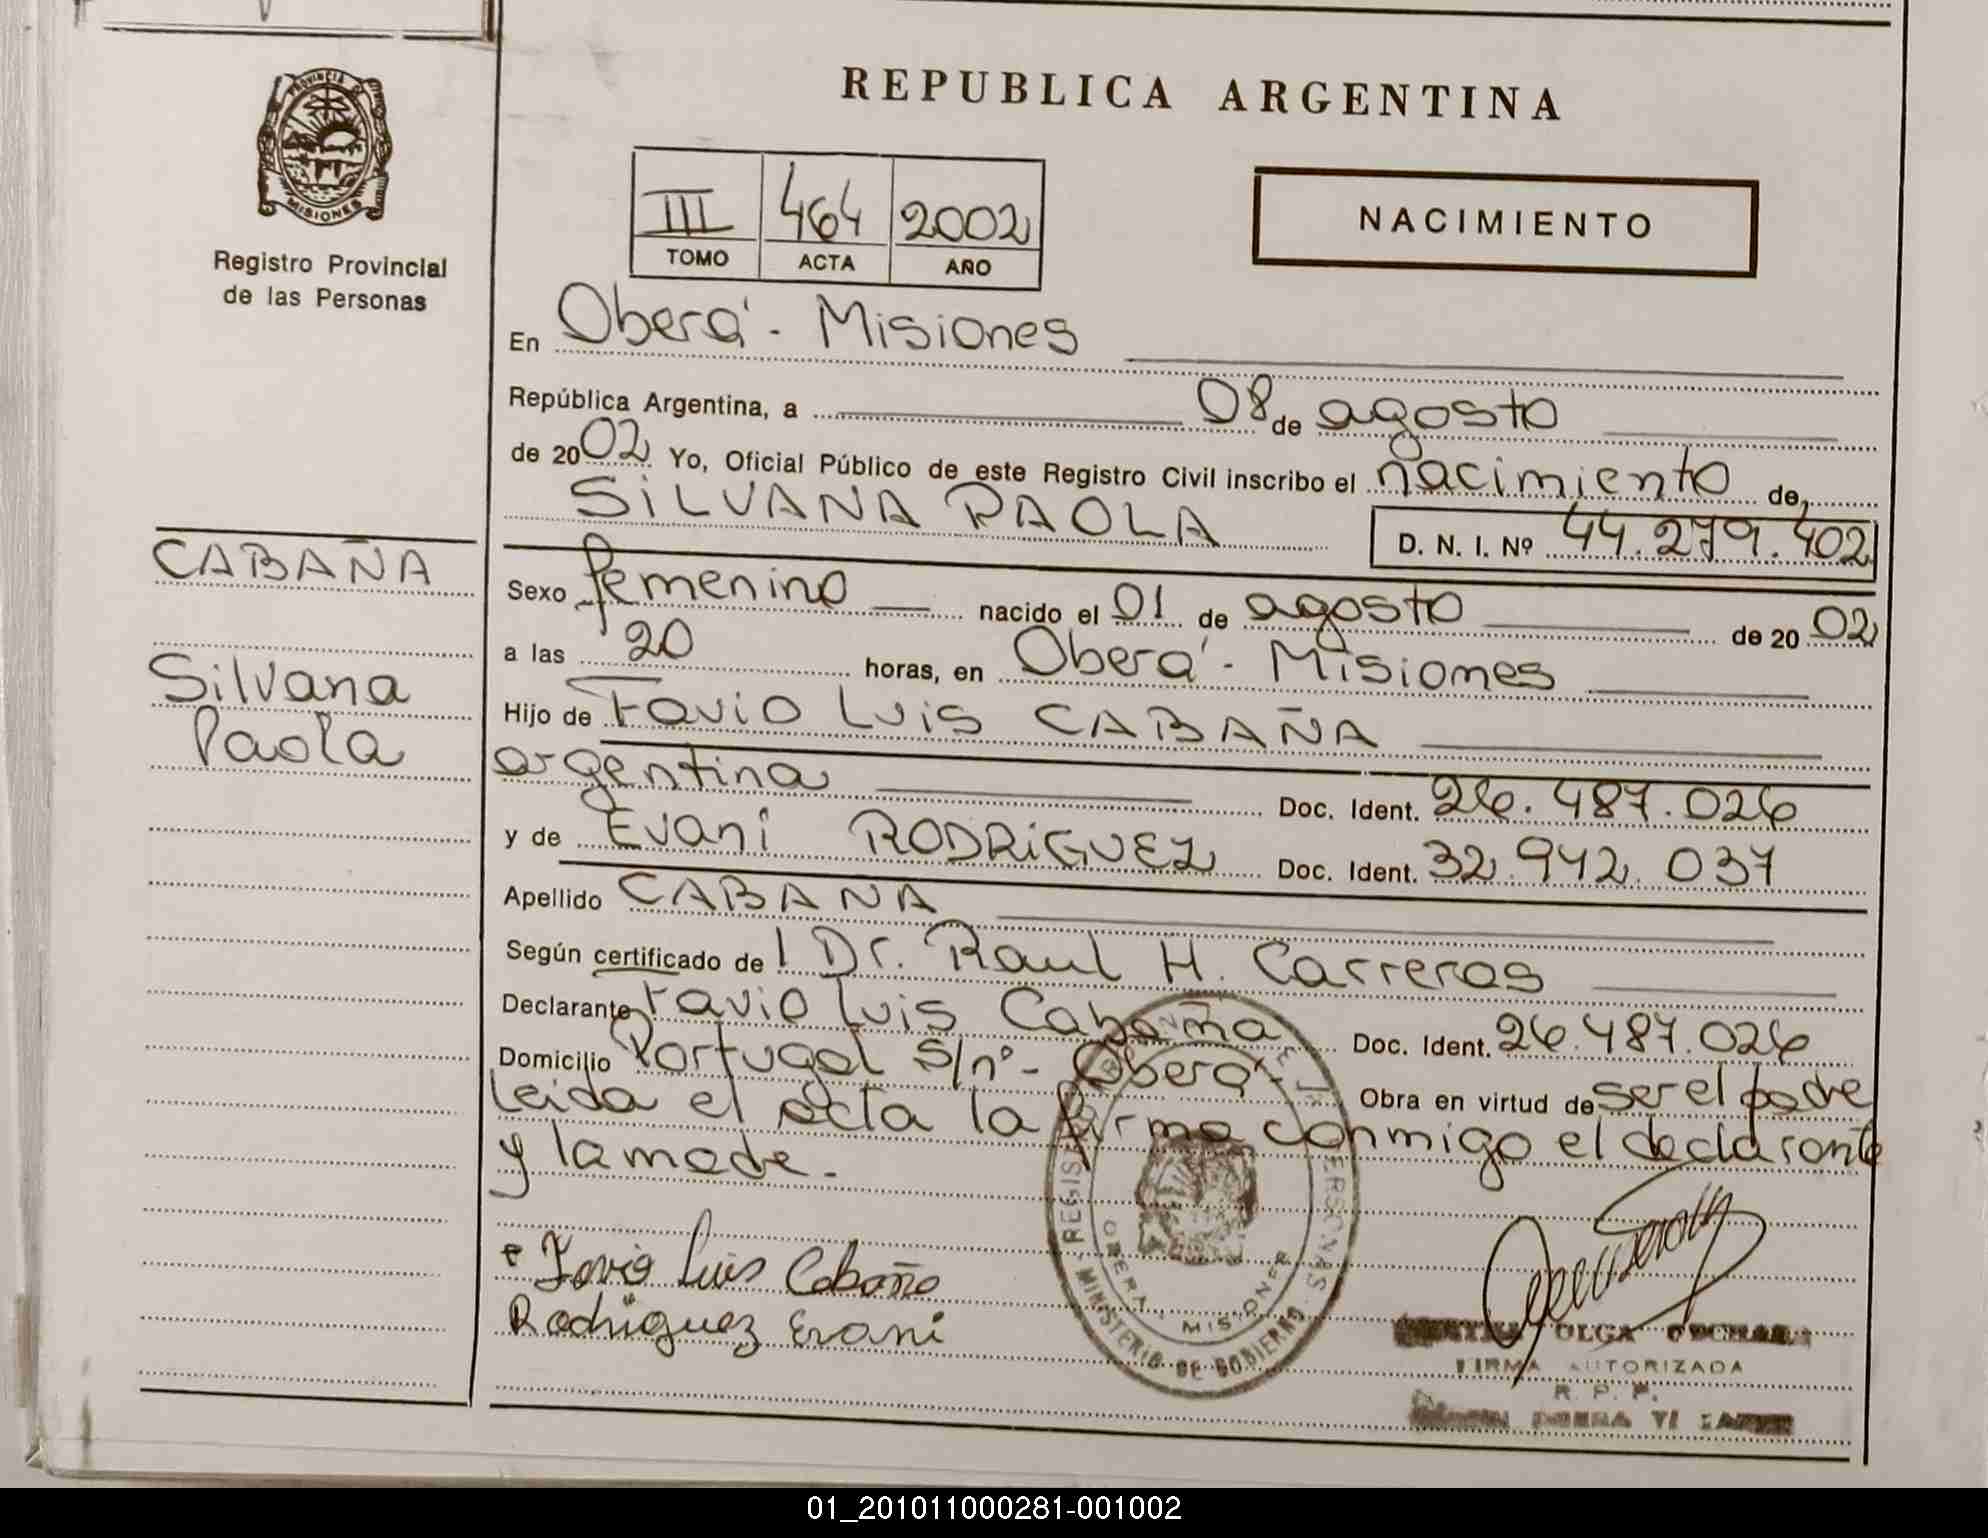 REPUBLICA ARGENTINA
PROVINCIA DE
MISIONES
Registro Provincial
de las Personas
III 464 2002
TOMO ACTA AÑO
NACIMIENTO
En Oberá - Misiones
República Argentina, a 08 de agosto
de 2002 Yo, Oficial Público de este Registro Civil inscribo el nacimiento de
SILVANA PAOLA D. N. I. Nº 44.279.402
CABAÑA
Silvana
Paola
Sexo femenino nacido el 01 de agosto de 2002
a las 20 horas, en Oberá - Misiones
Hijo de Favio Luis CABAÑA
argentina Doc. Ident. 26.487.026
y de Evani RODRIGUEZ Doc. Ident. 32.942.037
Apellido CABAÑA
Según certificado de l Dr. Raul H. Carreras
Declarante Favio Luis Cabaña Doc. Ident. 26.487.026
Domicilio Portugal s/nº - Oberá - Obra en virtud de ser el padre
Leida el acta la firma conmigo el declarante
y la made.
Favio Luis Cabaña
Rodriguez Evani
MINISTERIO DE GOBIERNO
OBERA MISIONES
OLGA
FIRMA AUTORIZADA
R. P. P.
01_201011000281-001002